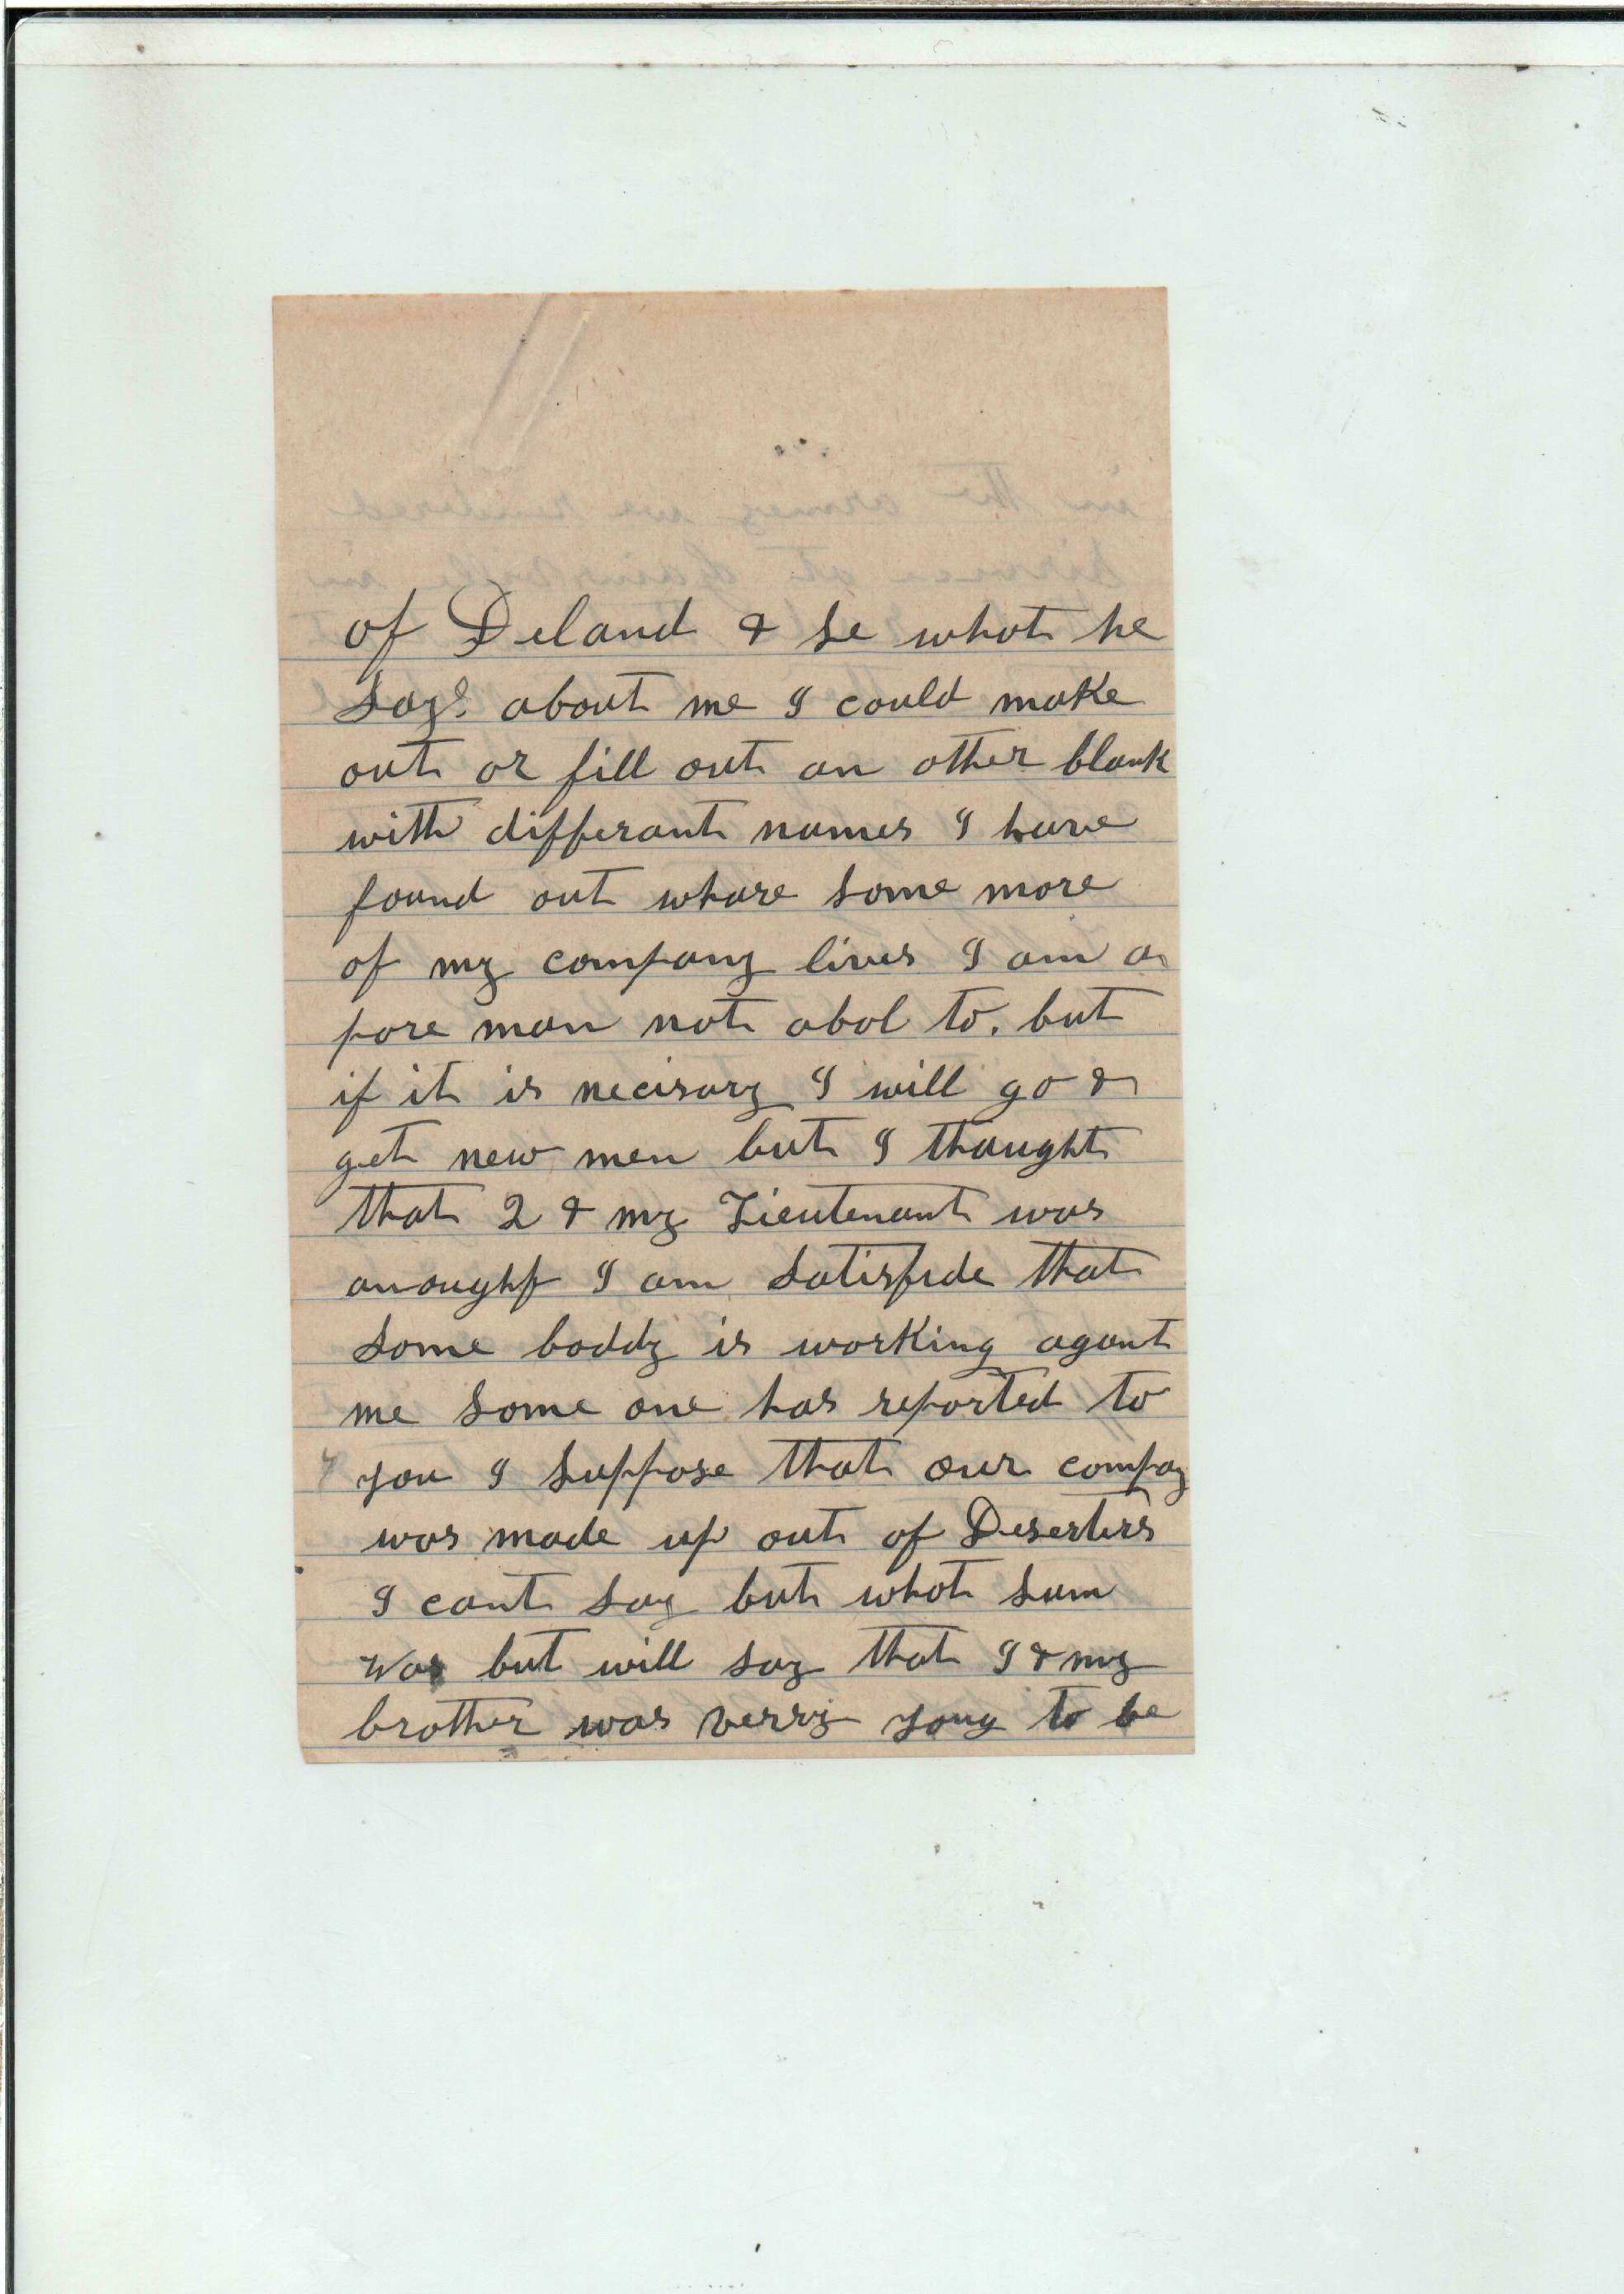 of Deland & se what he
says about me I could make
out or fill out an other blank
with differant names I have
found out whare some more
of my company lives I am a
pore man not abol to. but
if it is necisary I will go &
get new men but I thought
that 2 & my Lieutenant was
anought I am satisfide that
some boddy is working agant
me some one has reported to
you I suppose that our compay
was made up out of Deserters
I cant say but what sum
Was but will say that I & my
brother was verry yong to be